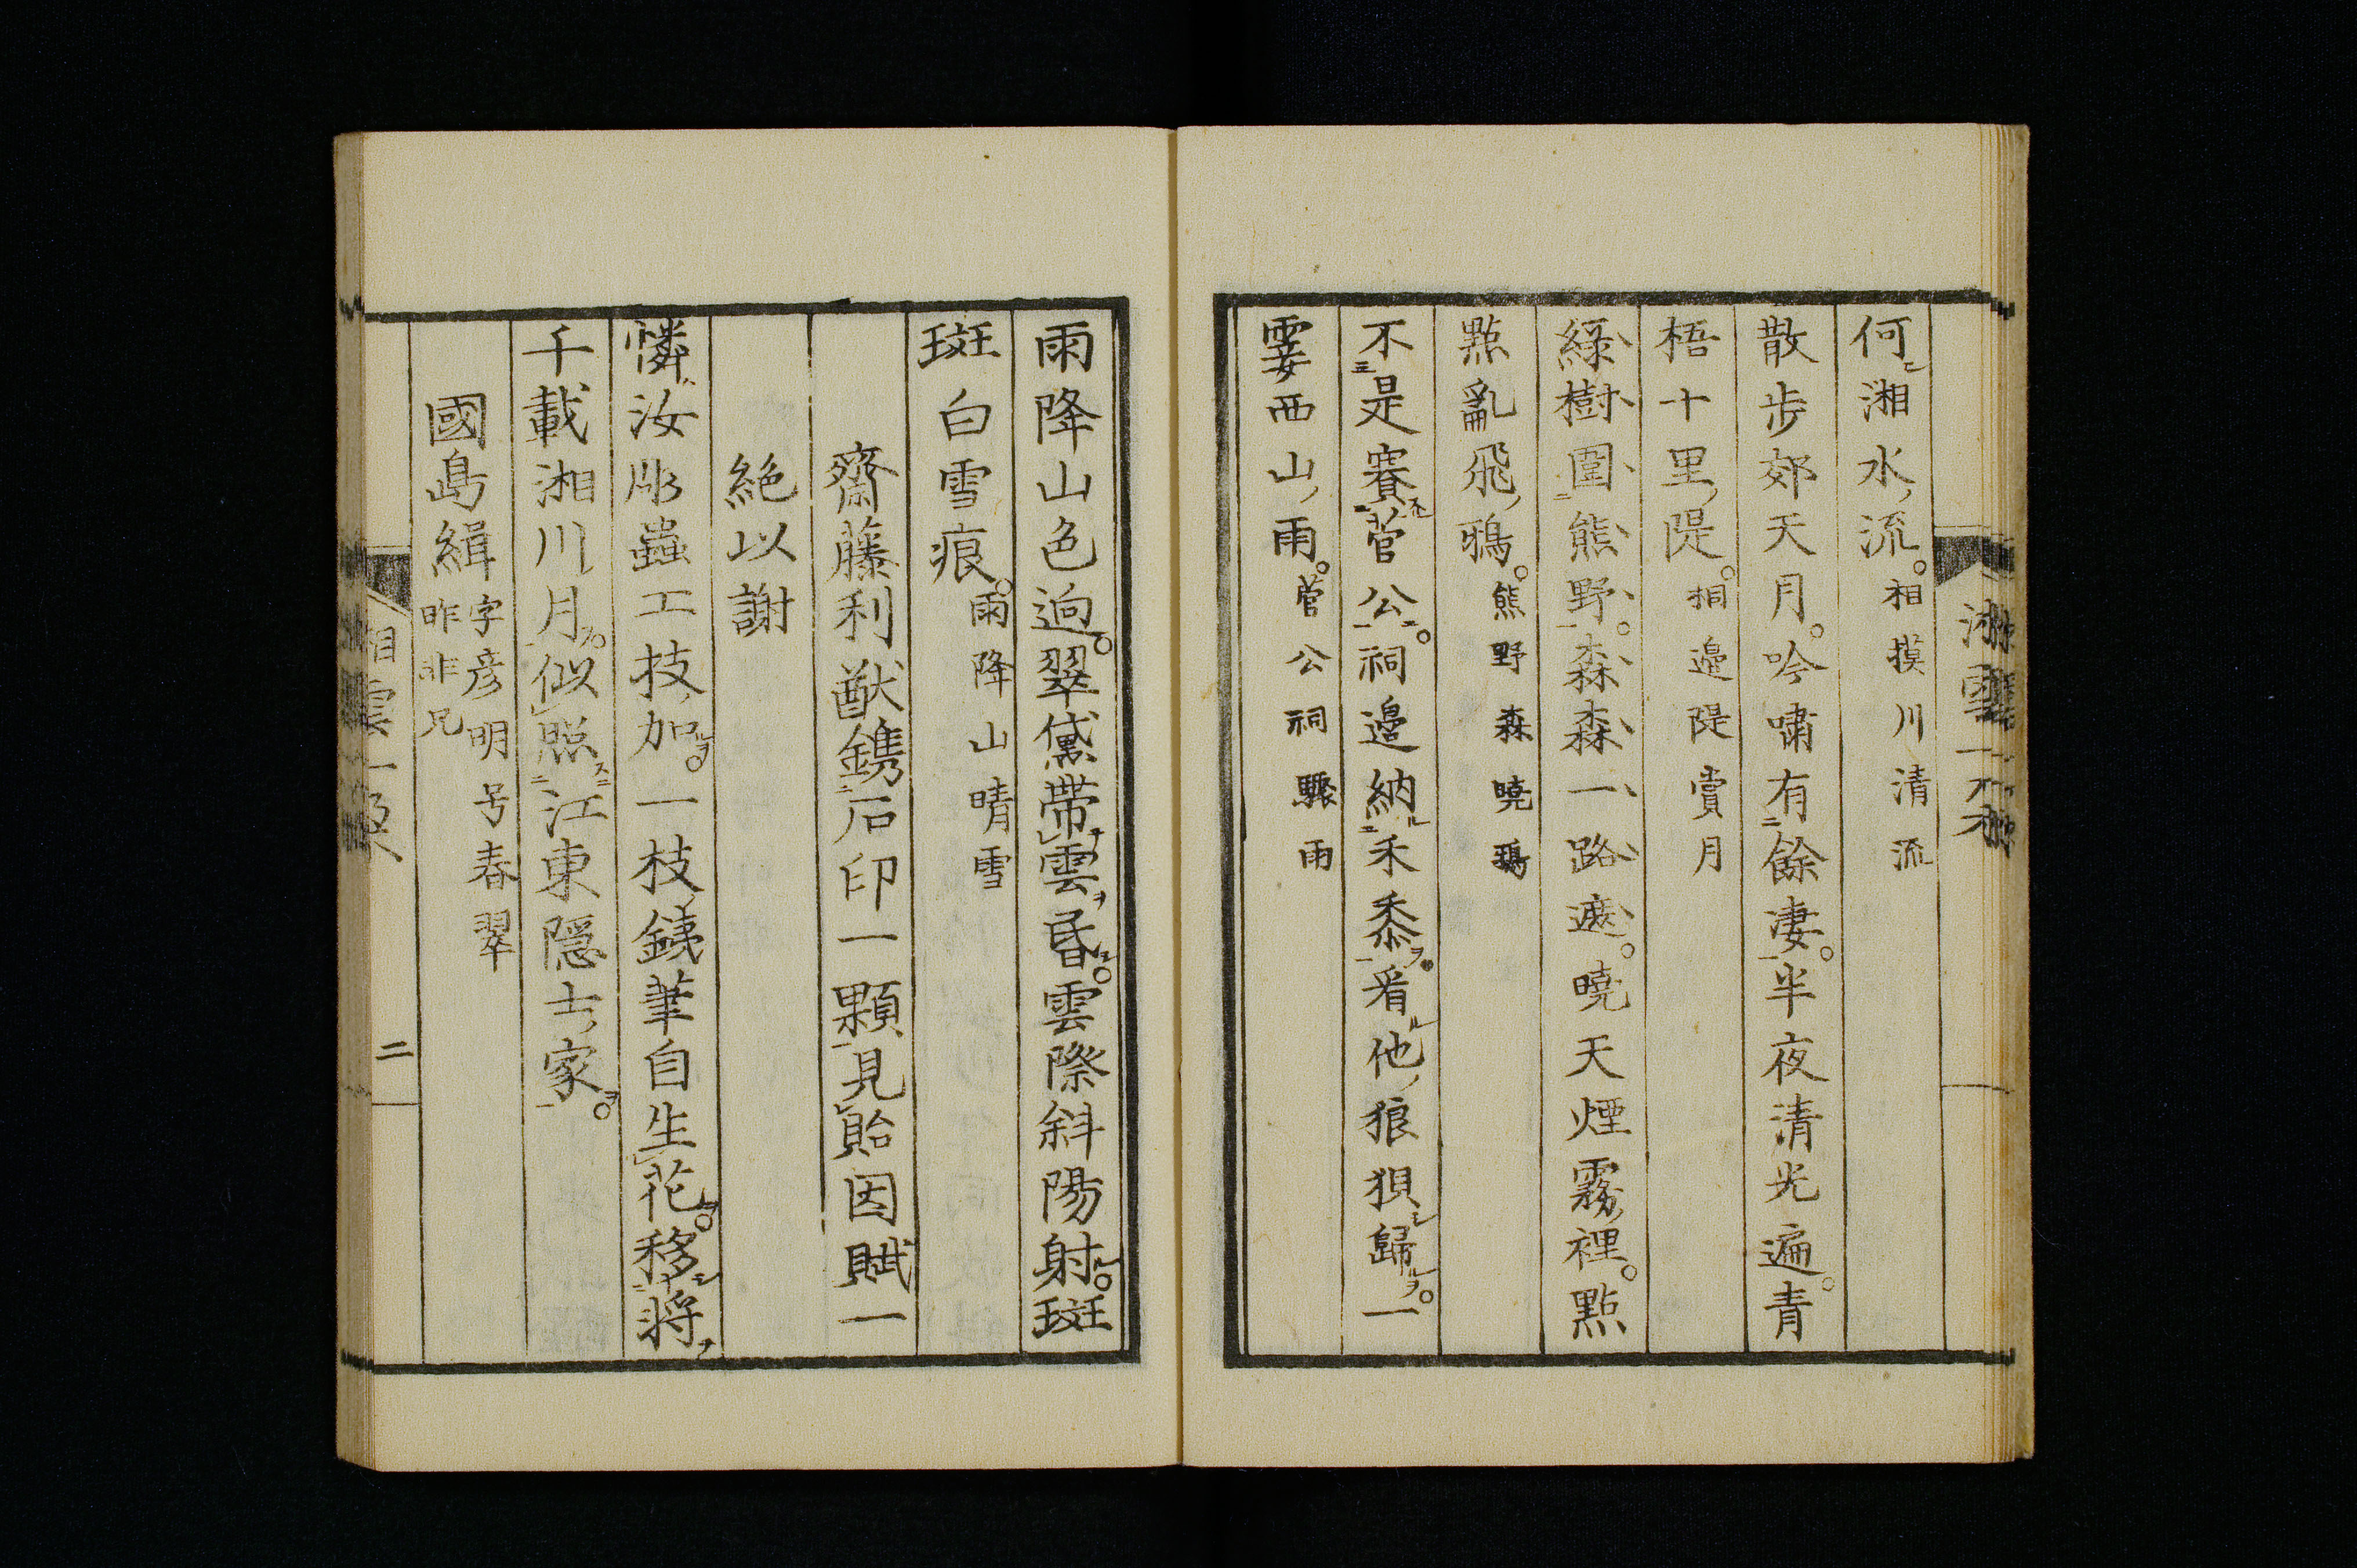 何湘水流。相摸川清流
散步郊天月。吟嘯有餘凄。半夜清光遍。青
梧十里隄。桐邊隄賞月
綠樹圍熊野。森森一路遮。曉天煙霧裡。點
點亂飛鴉。熊野森曉鴉
不是賽菅公。祠邊納禾黍。看他狼狽歸。一
霎西山雨。菅公祠驟雨
雨降山色逈。翠黛帶雲昏。雲際斜陽射。斑
斑白雪痕。雨降山晴雪
齋藤利猷鐫石印一顆見貽因賦一
絶以謝
憐汝彫蟲工技加。一枝銕筆自生花。移將
千載湘川月。似照江東隱士家。
國島緝 字彥明号春翠
昨非兄
二